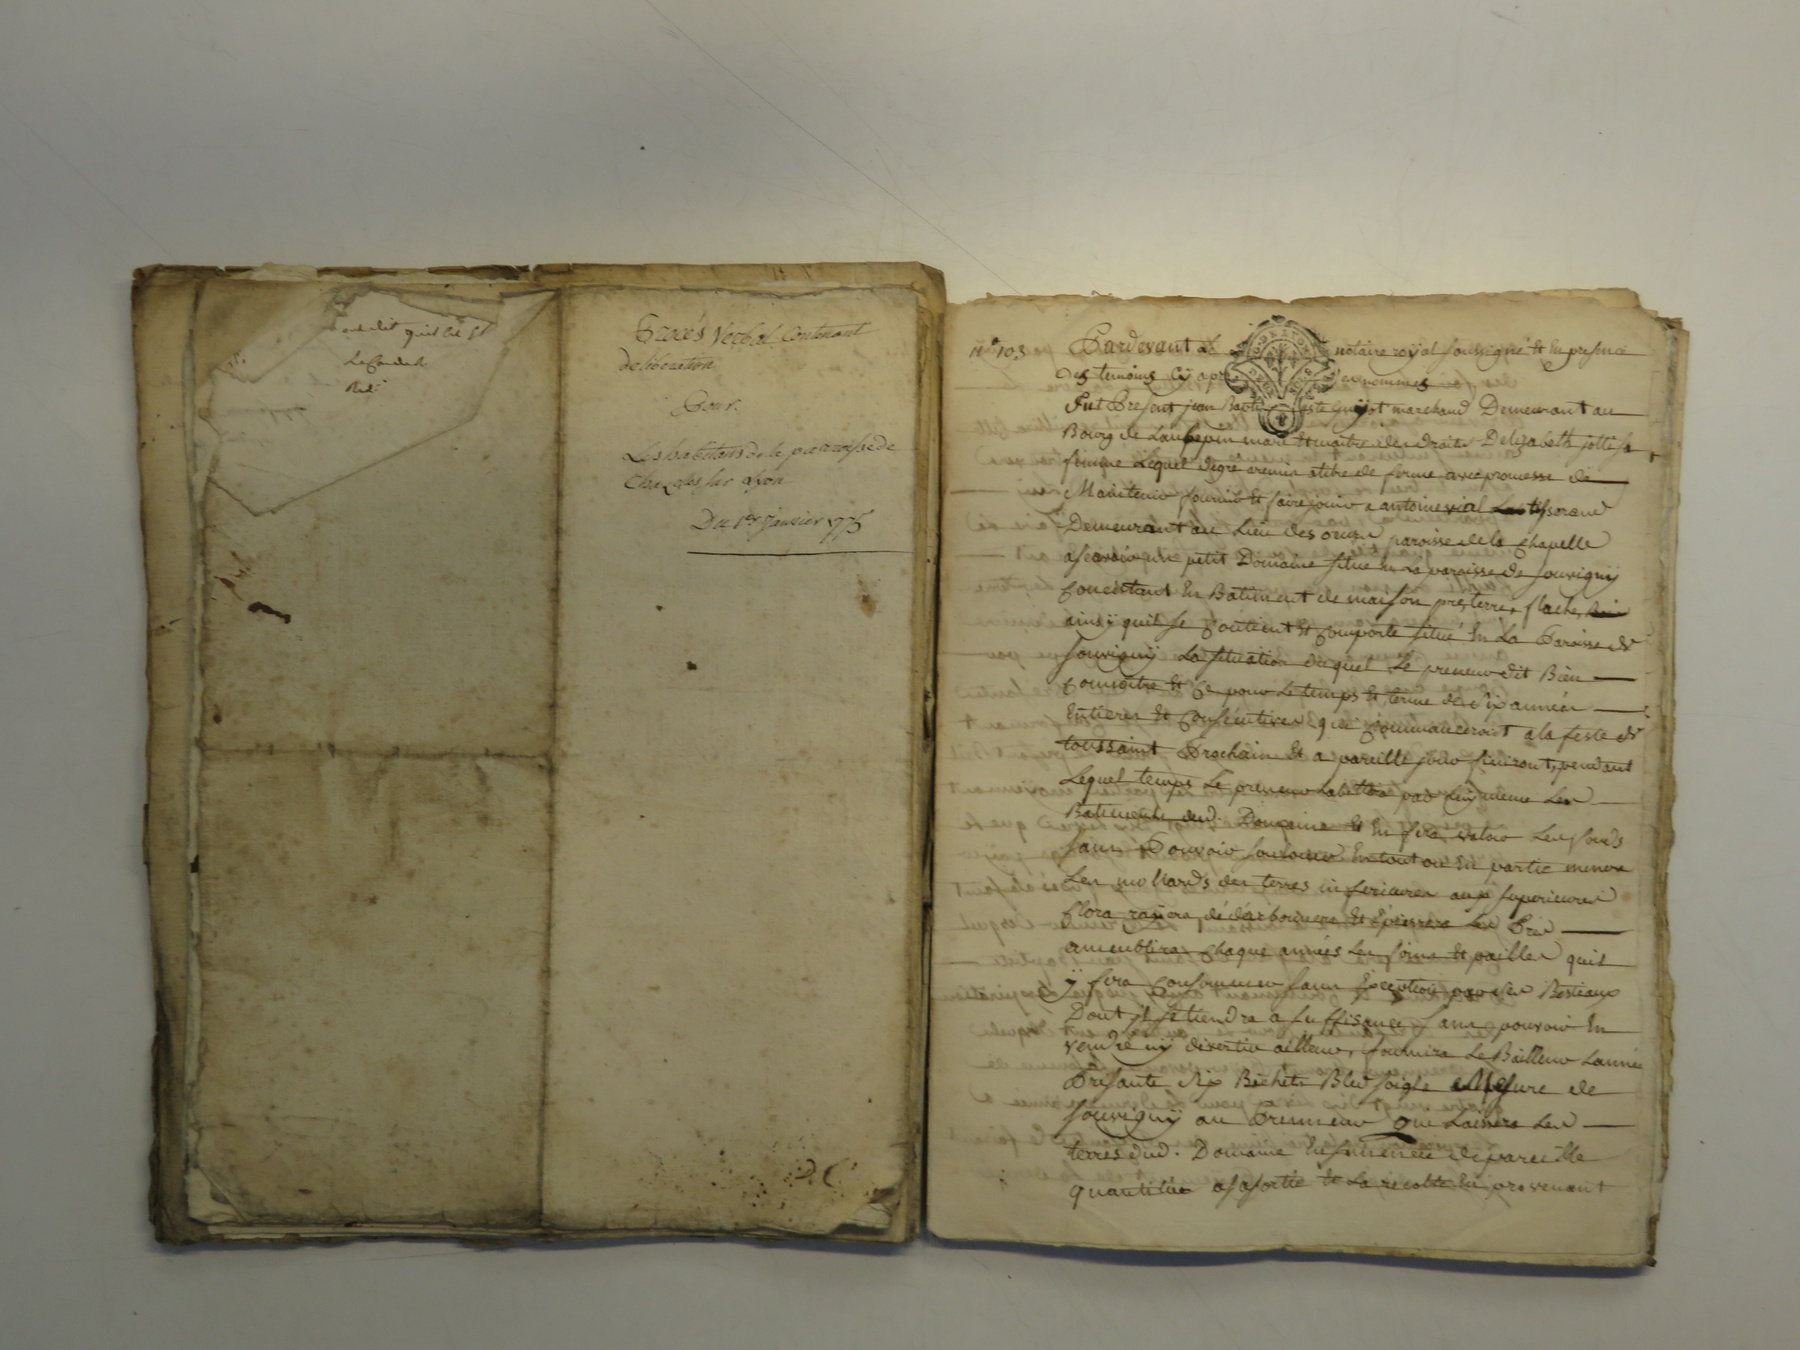 quil
Procés Verbal Contenant
deliberation
Pour
Les habitans de la parroisse de
sur Lyon
Du 1er Janvier 1775
n° 103
Pardevant Le notaire royal soussigné Et En presence
des temoins Cy apres nommes
fut Present jean Baptiste Guyot marchand Demeurant au
Bourg de Laubepin mari Et maitre des droits Delizabeth sa
femme Lequel degre aremis atitre de ferme avec promesse de
Maintenir fournir Et faire jouir a antoine vial tisserand
Demeurant au Lieu des paroisse de la Chapelle
ascavoir un petit Domaine situé En La paroisse de souvigny
Concistant En Batiment de maison pres, terre,
ainsy quil se Contient Et Comporte situé En La Paroisse de
souvigny La situation duquel Le preneur dit Bien
Connoitre Et Ce pour Le temps Et terme de six années
Entieres Et Consécutives qui Commanceront a la feste de
toussaint Prochain Et a pareille jour finiront, pendant
Lequel temps Le preneur abittera par Luy meme Les
Batiments dud. Domaine Et En fera valoir Les fonds
sans Pouvoir En tout ou En partie menera
Les mollards des terres inferieures aux superieures
Clora rasera, Et Epierrera Les Pres
ameublira Chaque années Les foins Et pailles quil
ÿ fera Consommer sans Exception par ses Bestiaux
Dont il se tiendra a suffisance sans pouvoir En
vendre nÿ divertir ailleurs, fournira Le Bailleur Lannée
Presante six Bichets Bled soigle Mesure de
souvigny au Preneur qui Laissera Les
terres dud. Domaine Ensemencé de pareille
quantitée assortie de La recolte En provenant